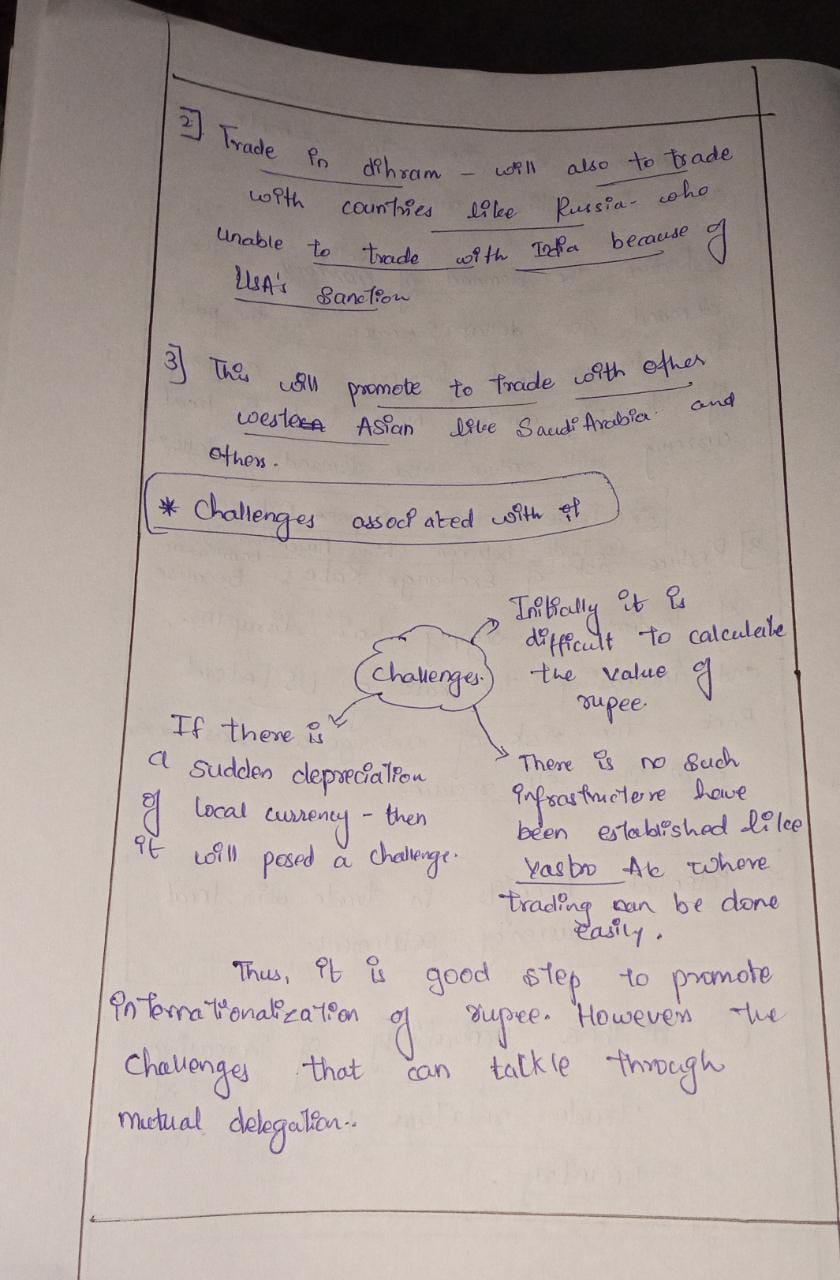 2] Trade in dihram - will also to trade
with countries like Russia - who
unable to trade with India because of
USA's Sanction
3] This will promote to trade with other
western Asian like Saudi Arabia and
others.
* Challenges associated with it
Challenges.
Initially it is
difficult to calculate
the value of
rupee.
If there is
a sudden depreciation
of local currency - then
it will posed a challenge.
There is no such
infrastructure have
been established like
Vastro A/c where
trading can be done
easily.
Thus, it is good step to promote
internationalization of rupee. However the
challenges that can takle through
mutual delegation.